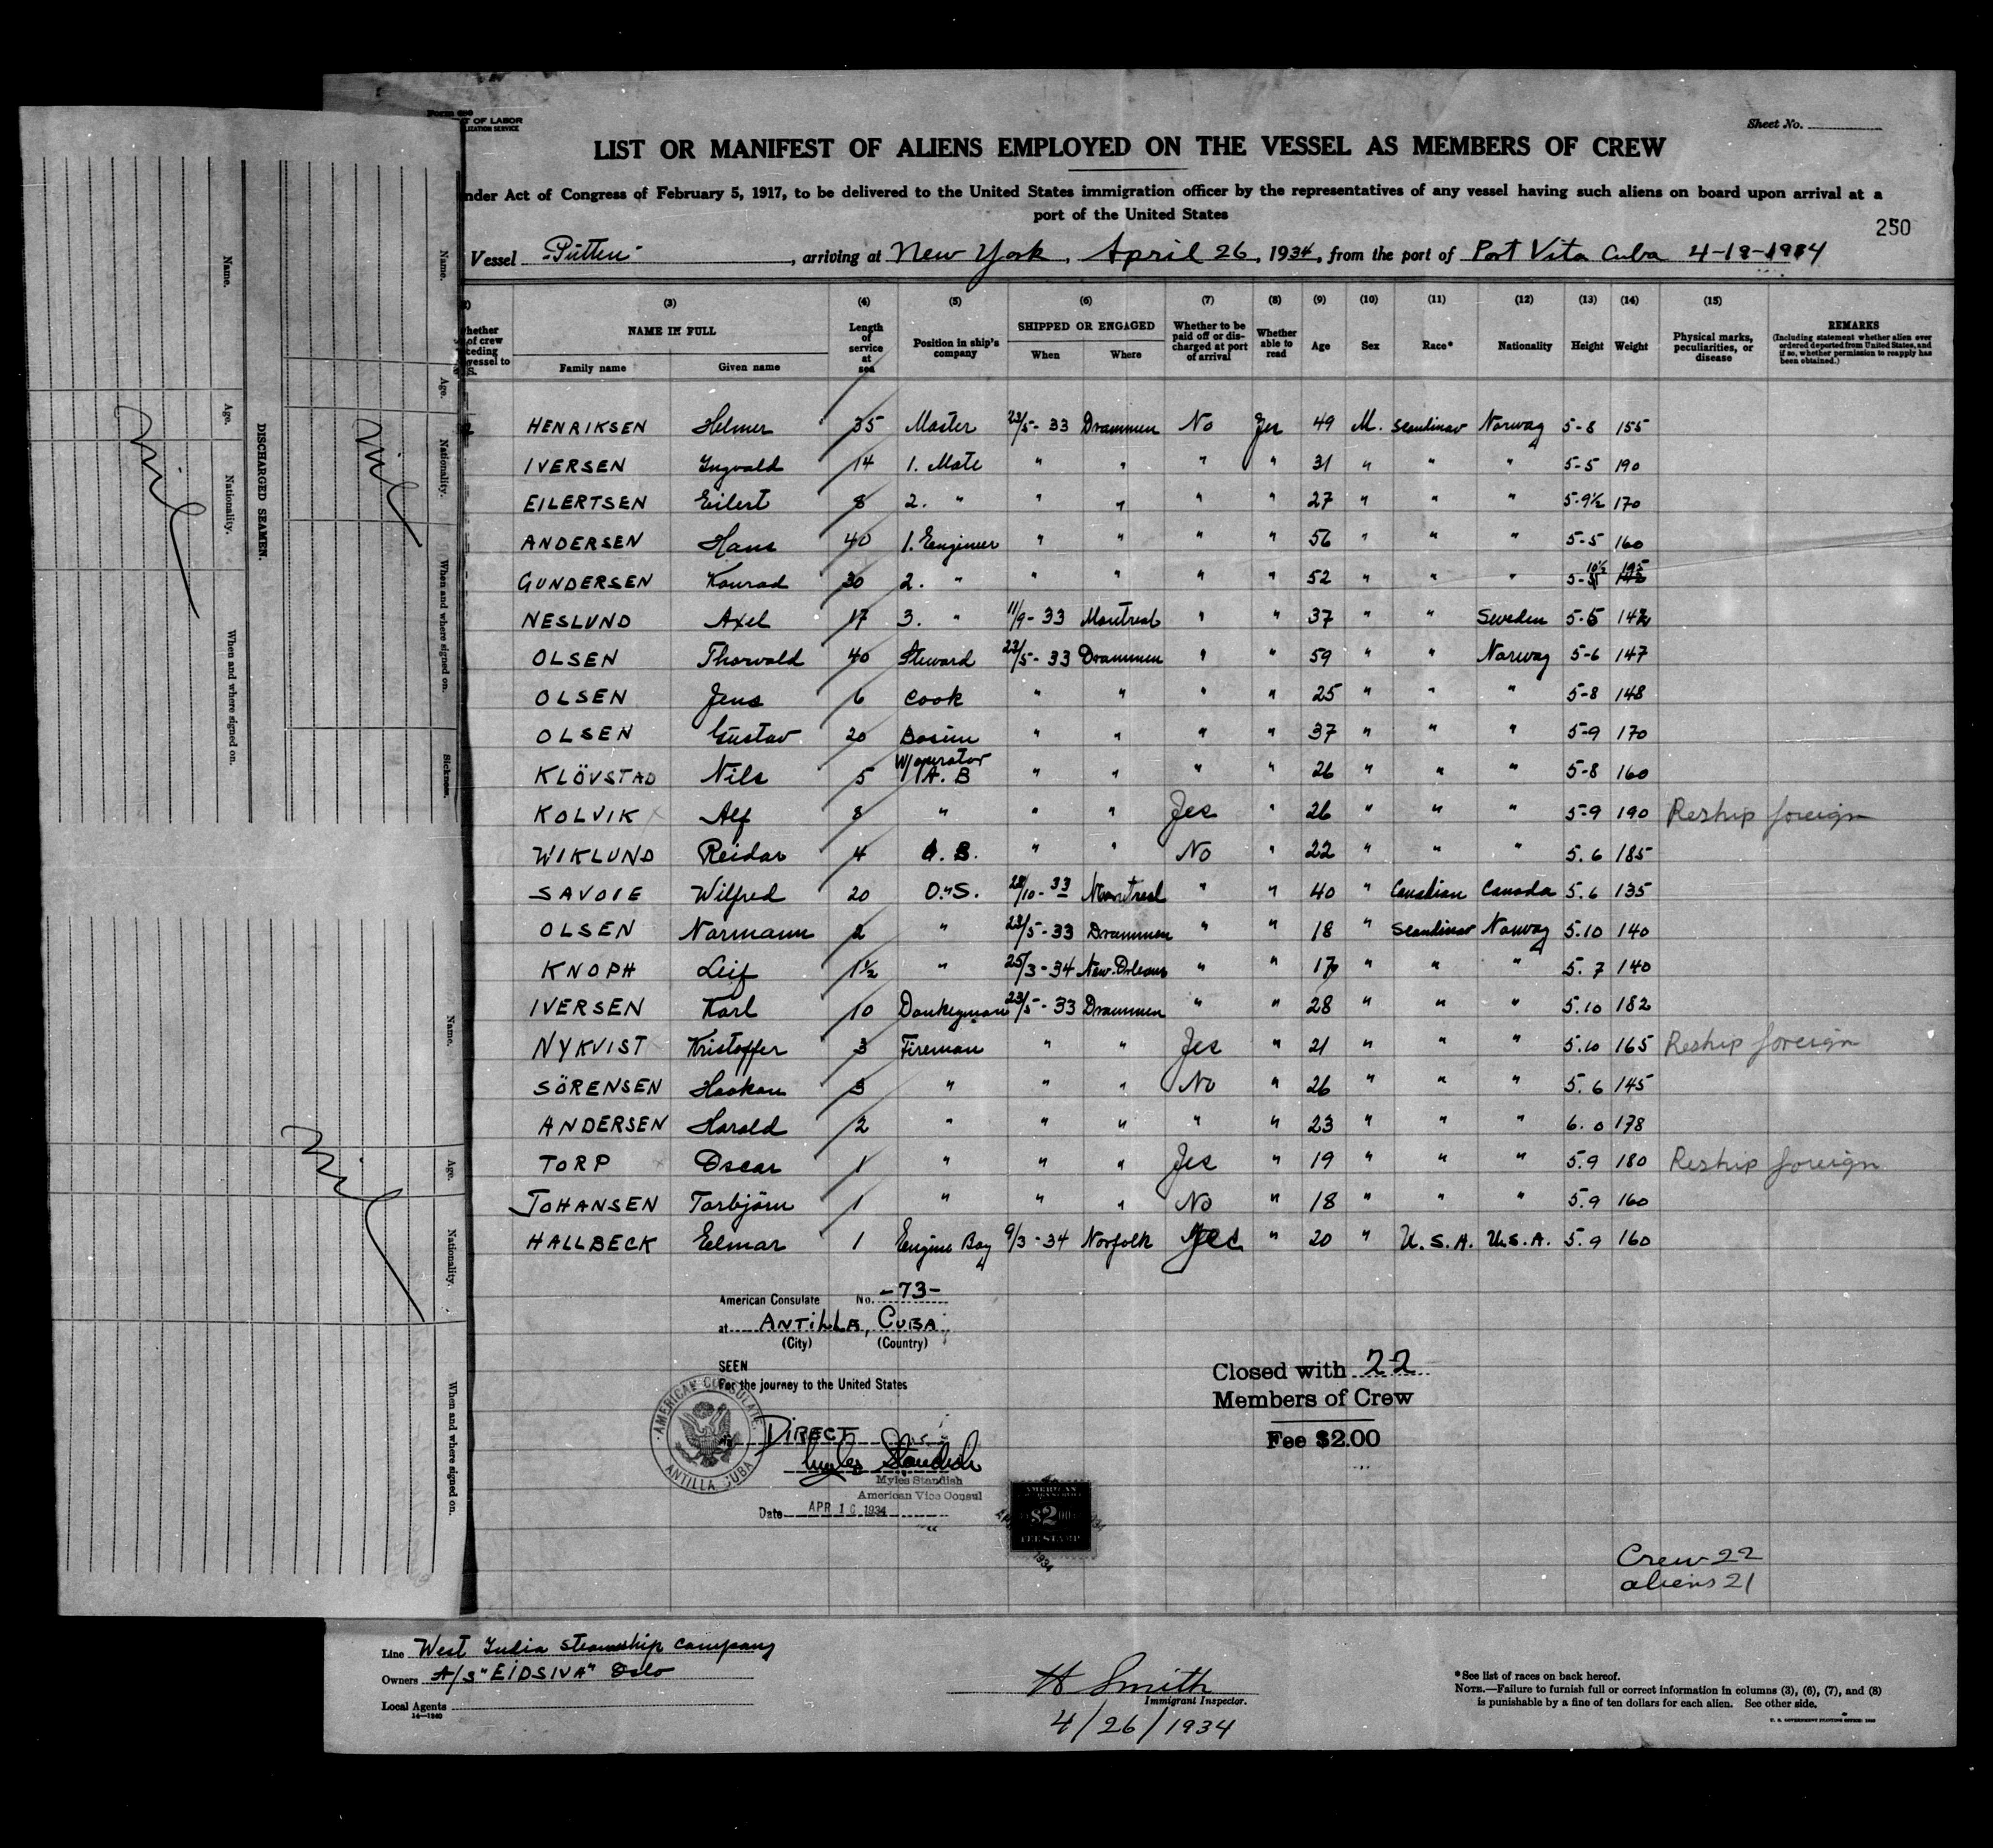 Sheet No.
T OF LABOR
LIZATION SERVICE
LIST OR MANIFEST OF ALIENS EMPLOYED ON THE VESSEL AS MEMBERS OF CREW
nder Act of Congress of February 5, 1917, to be delivered to the United States immigration officer by the representatives of any vessel having such aliens on board upon arrival at a
port of the United States
250
Vessel , arriving at New York, April 26, 1934, from the port of Port Vita Cuba 4-18-1934
(3) (4) (5) (6) (7) (8) (9) (10) (11) (12) (13) (14) (15)
NAME IN FULL Family name Given name Length of service at sea Position in ship's company SHIPPED OR ENGAGED When Where Whether to be paid off or discharged at port of arrival Whether able to read Age Sex Race* Nationality Height Weight Physical marks, peculiarities, or disease REMARKS
(Including statement whether alien ever ordered deported from United States, and if so, whether permission to reapply has been obtained.)
HENRIKSEN Helmer 35 Master 23/5-33 Drammen No Yes 49 M. Scandinav Norway 5-8 155
IVERSEN Yngvald 14 1. Mate " " " " 31 " " " 5-5 190
EILERTSEN Eilert 8 2. " " " " " 27 " " " 5-9½ 170
ANDERSEN Hans 40 1. Engineer " " " " 56 " " " 5-5 160
GUNDERSEN Konrad 30 2. " " " " " 52 " " " 5-10½ 195
NESLUND Axel 17 3. " 11/9-33 Montreal " " 37 " " Sweden 5-5 142
OLSEN Thorvald 40 Steward 23/5-33 Drammen " " 59 " " Norway 5-6 147
OLSEN Jens 6 Cook " " " " 25 " " " 5-8 148
OLSEN Gustav 20 Bosun " " " " 37 " " " 5-9 170
KLÖVSTAD Nils 5 W/operator A.B " " " " 26 " " " 5-8 160
KOLVIK Alf 8 " " " Yes " 26 " " " 5-9 190 Reship foreign
WIKLUND Reidar 4 A.B. " " No " 22 " " " 5.6 185
SAVOIE Wilfred 20 O.S. 28/10-33 Montreal " " 40 " Canadian Canada 5.6 135
OLSEN Normann 2 " 23/5-33 Drammen " " 18 " Scandinav Norway 5.10 140
KNOPH Leif 1½ " 25/3-34 New-Orleans " " 17 " " " 5.7 140
IVERSEN Karl 10 Donkeyman 23/5-33 Drammen " " 28 " " " 5.10 182
NYKVIST Kristoffer 3 Fireman " " Yes " 21 " " " 5.10 165 Reship foreign
SÖRENSEN Haakon 3 " " " No " 26 " " " 5.6 145
ANDERSEN Harald 2 " " " " " 23 " " " 6.0 178
TORP Oscar 1 " " " Yes " 19 " " " 5.9 180 Reship foreign
JOHANSEN Torbjörn 1 " " " No " 18 " " " 5.9 160
HALLBECK Eelmar 1 Engine Boy 9/3-34 Norfolk Yes " 20 " U.S.A. U.S.A. 5.9 160
American Consulate No. -73-
at ANTILLA, CUBA
(City) (Country)
SEEN
For the journey to the United States
AMERICAN CONSULATE
ANTILLA CUBA
DIRECT
Myles Standish
Myles Standish
American Vice Consul
Date APR 16 1934
AMERICAN
$2.00
FEE STAMP
1934
Closed with 22
Members of Crew
Fee $2.00
Crew 22
aliens 21
Line West India Steamship Company
Owners A/S "EIDSIVA" Oslo
Local Agents
14—1240
H Smith
Immigrant Inspector.
4/26/1934
*See list of races on back hereof.
NOTE.—Failure to furnish full or correct information in columns (3), (6), (7), and (8)
is punishable by a fine of ten dollars for each alien. See other side.
Name. Age. Nationality. When and where signed on.
DISCHARGED SEAMEN.
Name. Age. Nationality. When and where signed on. Sickness.
Nil
Nil
Name. Age. Nationality. When and where signed on.
Nil